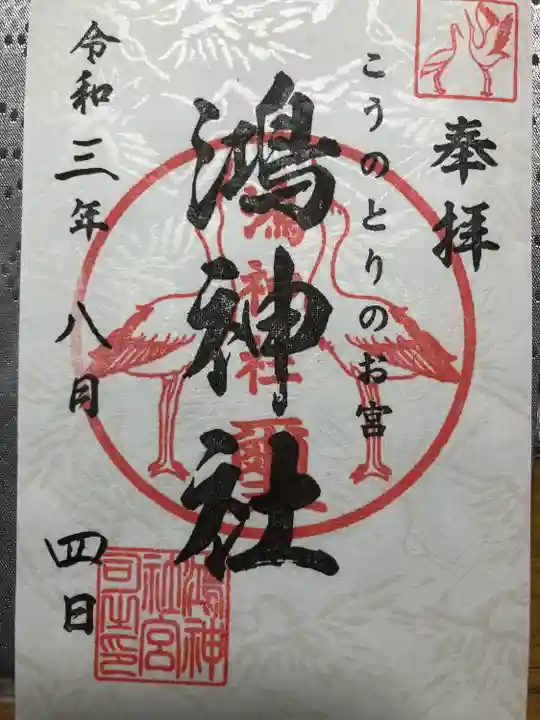 奉拝
こうのとりのお宮
鴻神社
鴻神社璽
令和三年八月四日
鴻神
社宮
司之印